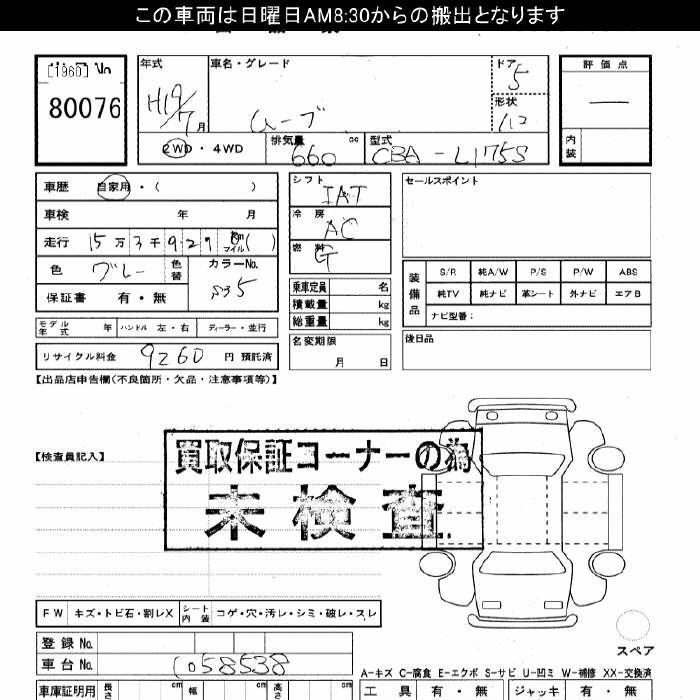 この車両は日曜日AM8:30からの搬出となります
[1960] No
80076
年式
H19/7月
車名・グレード
ムーブ
ドア
5
形状
評価点
—
内装
2WD・4WD
排気量 cc
660
型式
CBA-L175S
車歴 自家用・( )
車検 年 月
走行 15万3千929 km マイル ( )
色 グレー 色替
カラーNo.
S35
保証書 有・無
モデル年式 年 ハンドル 左・右 ディーラー・並行
リサイクル料金 9260 円 預託済
シフト
IAT
冷房
AC
燃料
G
乗車定員 名
積載量 kg
総重量 kg
名変期限
月 日
セールスポイント
装備品
S/R 純A/W P/S P/W ABS
純TV 純ナビ 革シート 外ナビ エアB
ナビ型番:
後日品
【出品店申告欄(不良箇所・欠品・注意事項等)】
【検査員記入】
買取保証コーナーの為
未検査
FW キズ・トビ石・割レX シート内装 コゲ・穴・汚レ・シミ・破レ・スレ
スペア
登録No.
車台No. 0058538
A-キズ C-腐食 E-エクボ S-サビ U-凹ミ W-補修 XX-交換済
車庫証明用 長さ cm 幅 cm 高さ cm
工具 有・無 ジャッキ 有・無